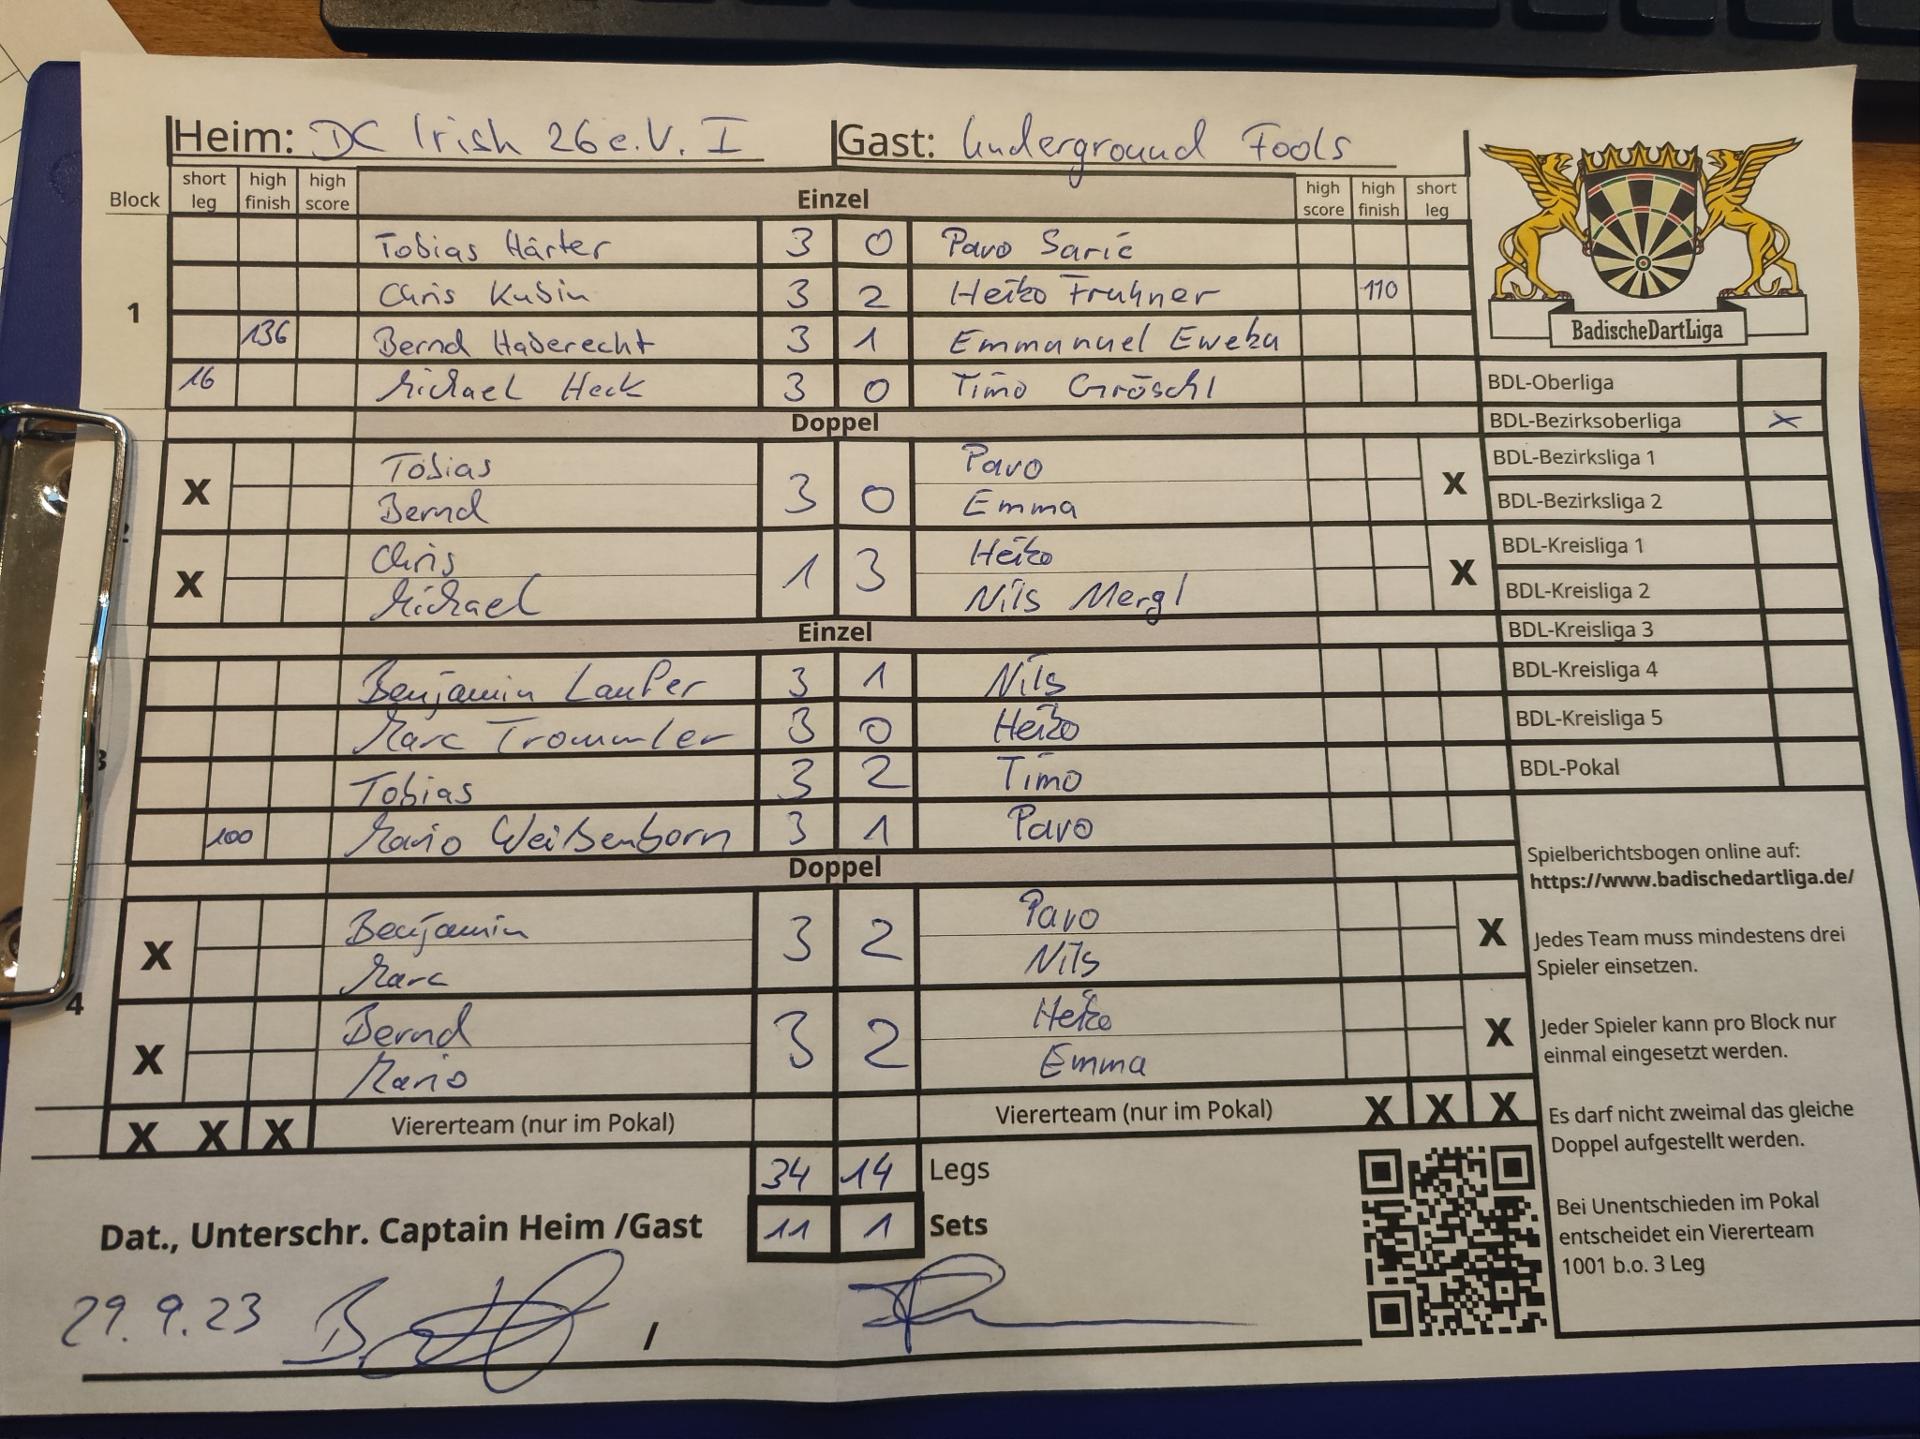 Heim: DC Irish 26 e.V. I Gast: Underground Fools
Block short leg high finish high score Einzel high score high finish short leg
Tobias Härter 3 0 Pavo Sarić
1 Chris Kubin 3 2 Heiko Fruhner 110
136 Bernd Haberecht 3 1 Emmanuel Eweka
16 Michael Heck 3 0 Timo Gröschl
Doppel
X Tobias 3 0 Pavo X
Bernd Emma
X Chris 1 3 Heiko X
Michael Nils Mergl
Einzel
Benjamin Laufer 3 1 Nils
Marc Trommler 3 0 Heiko
3 Tobias 3 2 Timo
100 Mario Weißenborn 3 1 Pavo
Doppel
X Benjamin 3 2 Pavo X
Marc Nils
4
X Bernd 3 2 Heiko X
Mario Emma
X X X Viererteam (nur im Pokal) Viererteam (nur im Pokal) X X X
34 14 Legs
Dat., Unterschr. Captain Heim /Gast 11 1 Sets
29.9.23 /
BadischeDartLiga
BDL-Oberliga
BDL-Bezirksoberliga X
BDL-Bezirksliga 1
BDL-Bezirksliga 2
BDL-Kreisliga 1
BDL-Kreisliga 2
BDL-Kreisliga 3
BDL-Kreisliga 4
BDL-Kreisliga 5
BDL-Pokal
Spielberichtsbogen online auf:
https://www.badischedartliga.de/
Jedes Team muss mindestens drei
Spieler einsetzen.
Jeder Spieler kann pro Block nur
einmal eingesetzt werden.
Es darf nicht zweimal das gleiche
Doppel aufgestellt werden.
Bei Unentschieden im Pokal
entscheidet ein Viererteam
1001 b.o. 3 Leg